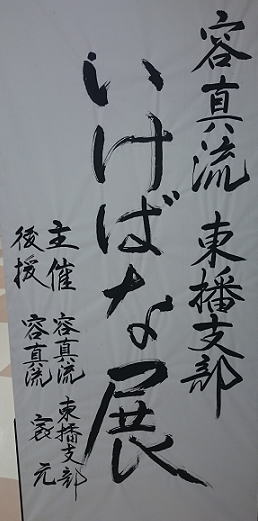 容真流 東播支部
いけばな展
主催 容真流 東播支部
後援 容真流 家元